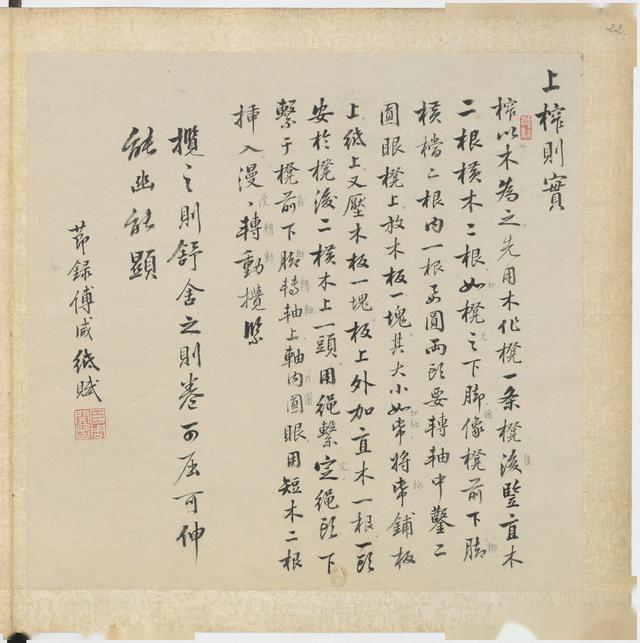 上榨則實
榨以木為之先用木作櫈一条櫈後豎直木
二根橫木二根如櫈之下脚像櫈前下脚
橫檔二根內一根要圓兩頭要轉軸中鑿二
圓眼櫈上放木板一塊其大小如帋將帋鋪板
上紙上又壓木板一塊板上外加直木一根一頭
安於櫈後二橫木上一頭用繩繫定繩頭下
繫于櫈前下脚轉軸上軸內圓眼用短木二根
挿入漫〻轉動攬緊
攬之則舒舍之則卷可屈可伸
能幽能顯
節錄傅咸紙賦
22